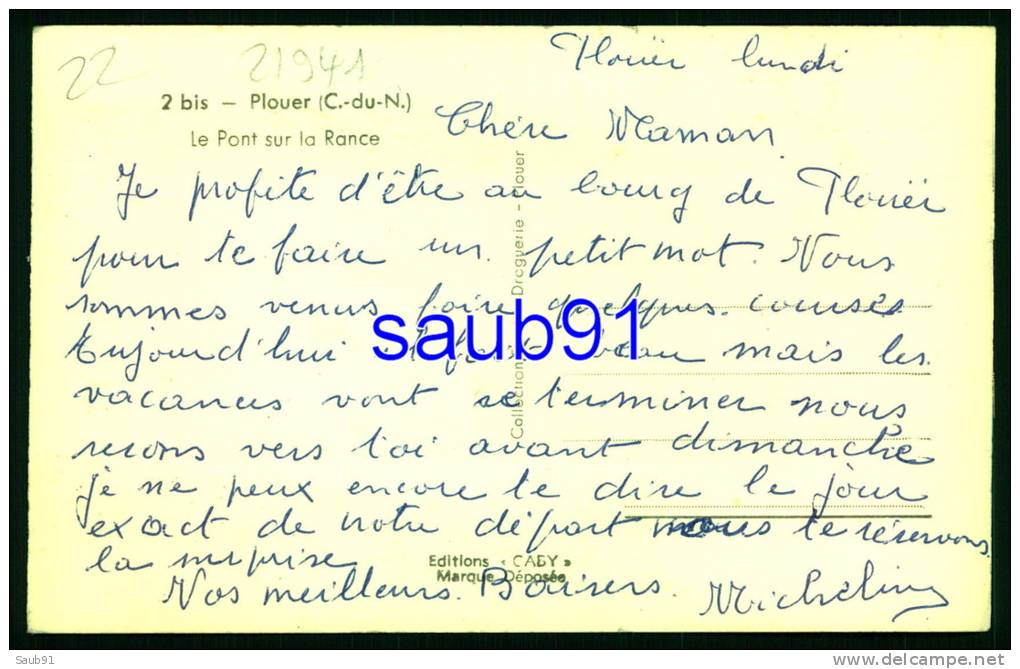 22
21941
Plouër lundi
2 bis — Plouer (C.-du-N.)
Le Pont sur la Rance
Chère Maman
Je profite d'être au bourg de Plouër
pour te faire un petit mot. Nous
sommes venus faire quelques courses
Aujourd'hui il fait beau mais les
vacances vont se terminer nous
serons vers toi avant dimanche
je ne peux encore te dire le jour
exact de notre départ nous te réservons
la surprise
Nos meilleurs Baisers. Micheline
Collection Droguerie - Plouer
Editions « CABY »
Marque Déposée
saub91
Saub91
delcampe.net